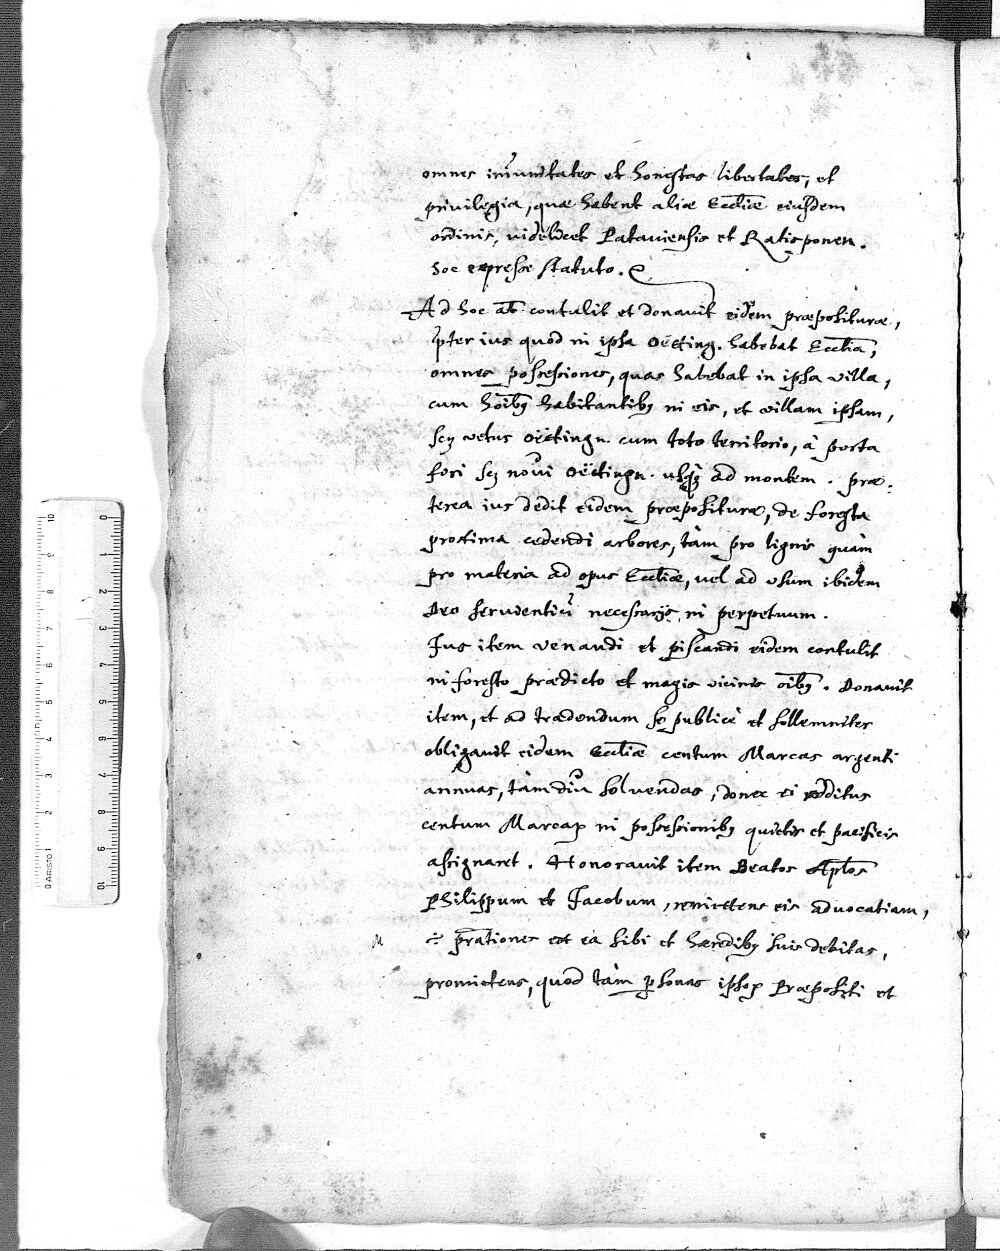 omnes im̄unitates et honestas libertates, et
priuilegia, quæ habent aliæ Eccl̄iæ eiusdem
ordinis, videlicet Patauiensis et Ratisponen.
hoc expresse statuto.
Ad hoc aūt contulit et donauit eidem præposituræ,
p̄ter ius quod in ipsa Oëcting. habebat Eccl̄ia,
omnes possessiones, quas habebat in ipsa villa,
cum hōibꝫ habitantibꝫ in eis, et villam ipsam,
scꝫ vetus Oëctingn. cum toto territorio, à porta
fori scꝫ noui Oëctingn. usqꝫ ad montem. præ:
terea ius dedit eidem præposituræ, de foresta
proxima cedendi arbores, tàm pro lignis quàm
pro materia ad opus Eccl̄iæ, vel ad vsum ibidem
Deo seruientiū necessarijs, in perpetuum.
Ius item venandi et piscandi eidem contulit
in foresto prædicto et magis vicinis oībꝫ. Donauit
item, et ad tradendum se publicè et sollemniter
obligauit eidem Eccl̄iæ centum Marcas argenti
annuas, tàm diu soluendas, donec ei redditus
centum Marcaꝝ in possessionibꝫ quietis et pacificis
assignaret. Honorauit item Beatos Ap̄los
Philippum et Jacobum, remittens eis aduocatiam,
÷ p̄rationes ex ea sibi et hæredibꝫ suis debitas,
promittens, quod tàm ꝑsonas ipsoꝝ Præpositi et